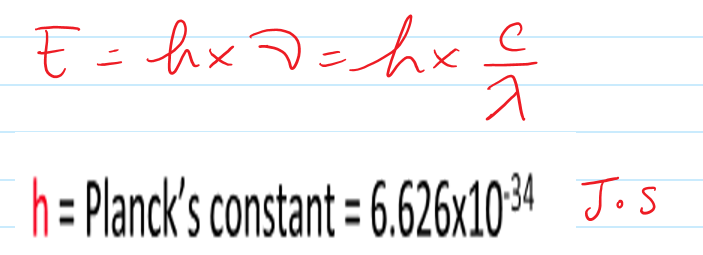 E = h x ν = h x c/λ
h = Planck's constant = 6.626x10⁻³⁴ J·s